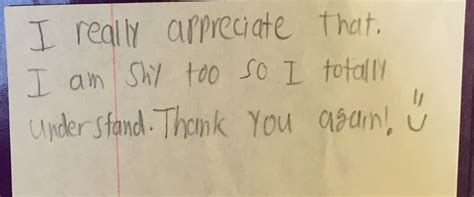 I really appreciate that.
I am shy too so I totally
understand. Thank you again! Ü